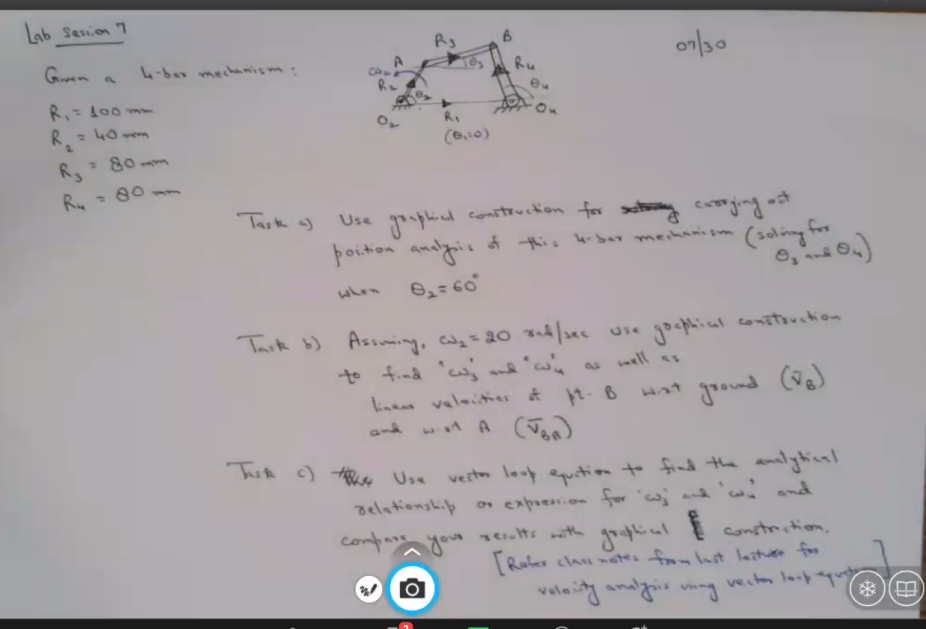 Lab Session 7
07/30
Given a 4-bar mechanism:
R₁ = 100 mm
R₂ = 40 mm
R₃ = 80 mm
R₄ = 80 mm
A R₃ B
ω₂ θ₃ R₄
R₂ θ₂ θ₄
O₂ R₁ O₄
(θ₁=0)
Task a) Use graphical construction for carrying out
position analysis of this 4-bar mechanism (solving for
θ₃ and θ₄)
when θ₂ = 60°
Task b) Assuming, ω₂ = 20 rad/sec use graphical construction
to find 'ω₃' and 'ω₄' as well as
linear velocities of pt. B w.r.t ground (V̄_B)
and w.r.t A (V̄_BA)
Task c) Use vector loop eqution to find the analytical
relationship or expression for 'ω₃' and 'ω₄' and
compare your results with graphical construction.
[Refer class notes from last lecture for
velocity analysis using vector loop
2